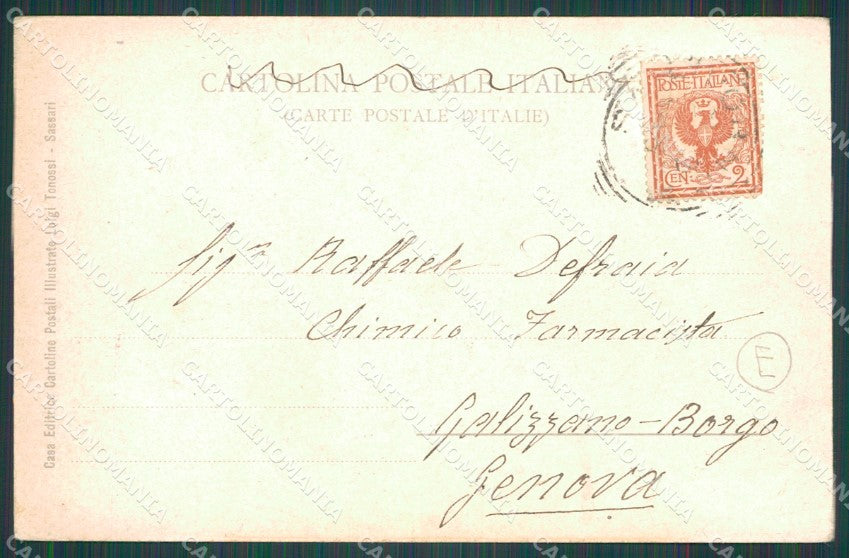 CARTOLINA POSTALE ITALIANA
(CARTE POSTALE D'ITALIE)
POSTE·ITALIANE
CEN. 2
Sigr. Raffaele Defraia
Chimico Farmacista
Galizzano-Borgo
Genova
E
Casa Editrice Cartoline Postali Illustrate Luigi Tonossi - Sassari
CARTOLINOMANIA